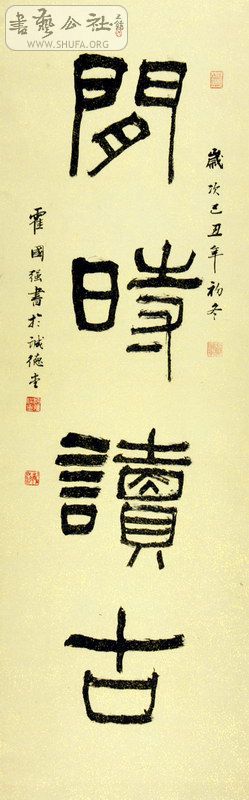 書藝公社
WWW.SHUFA.ORG
歲次己丑年初冬
閒時讀古
霍國强書於誠德堂